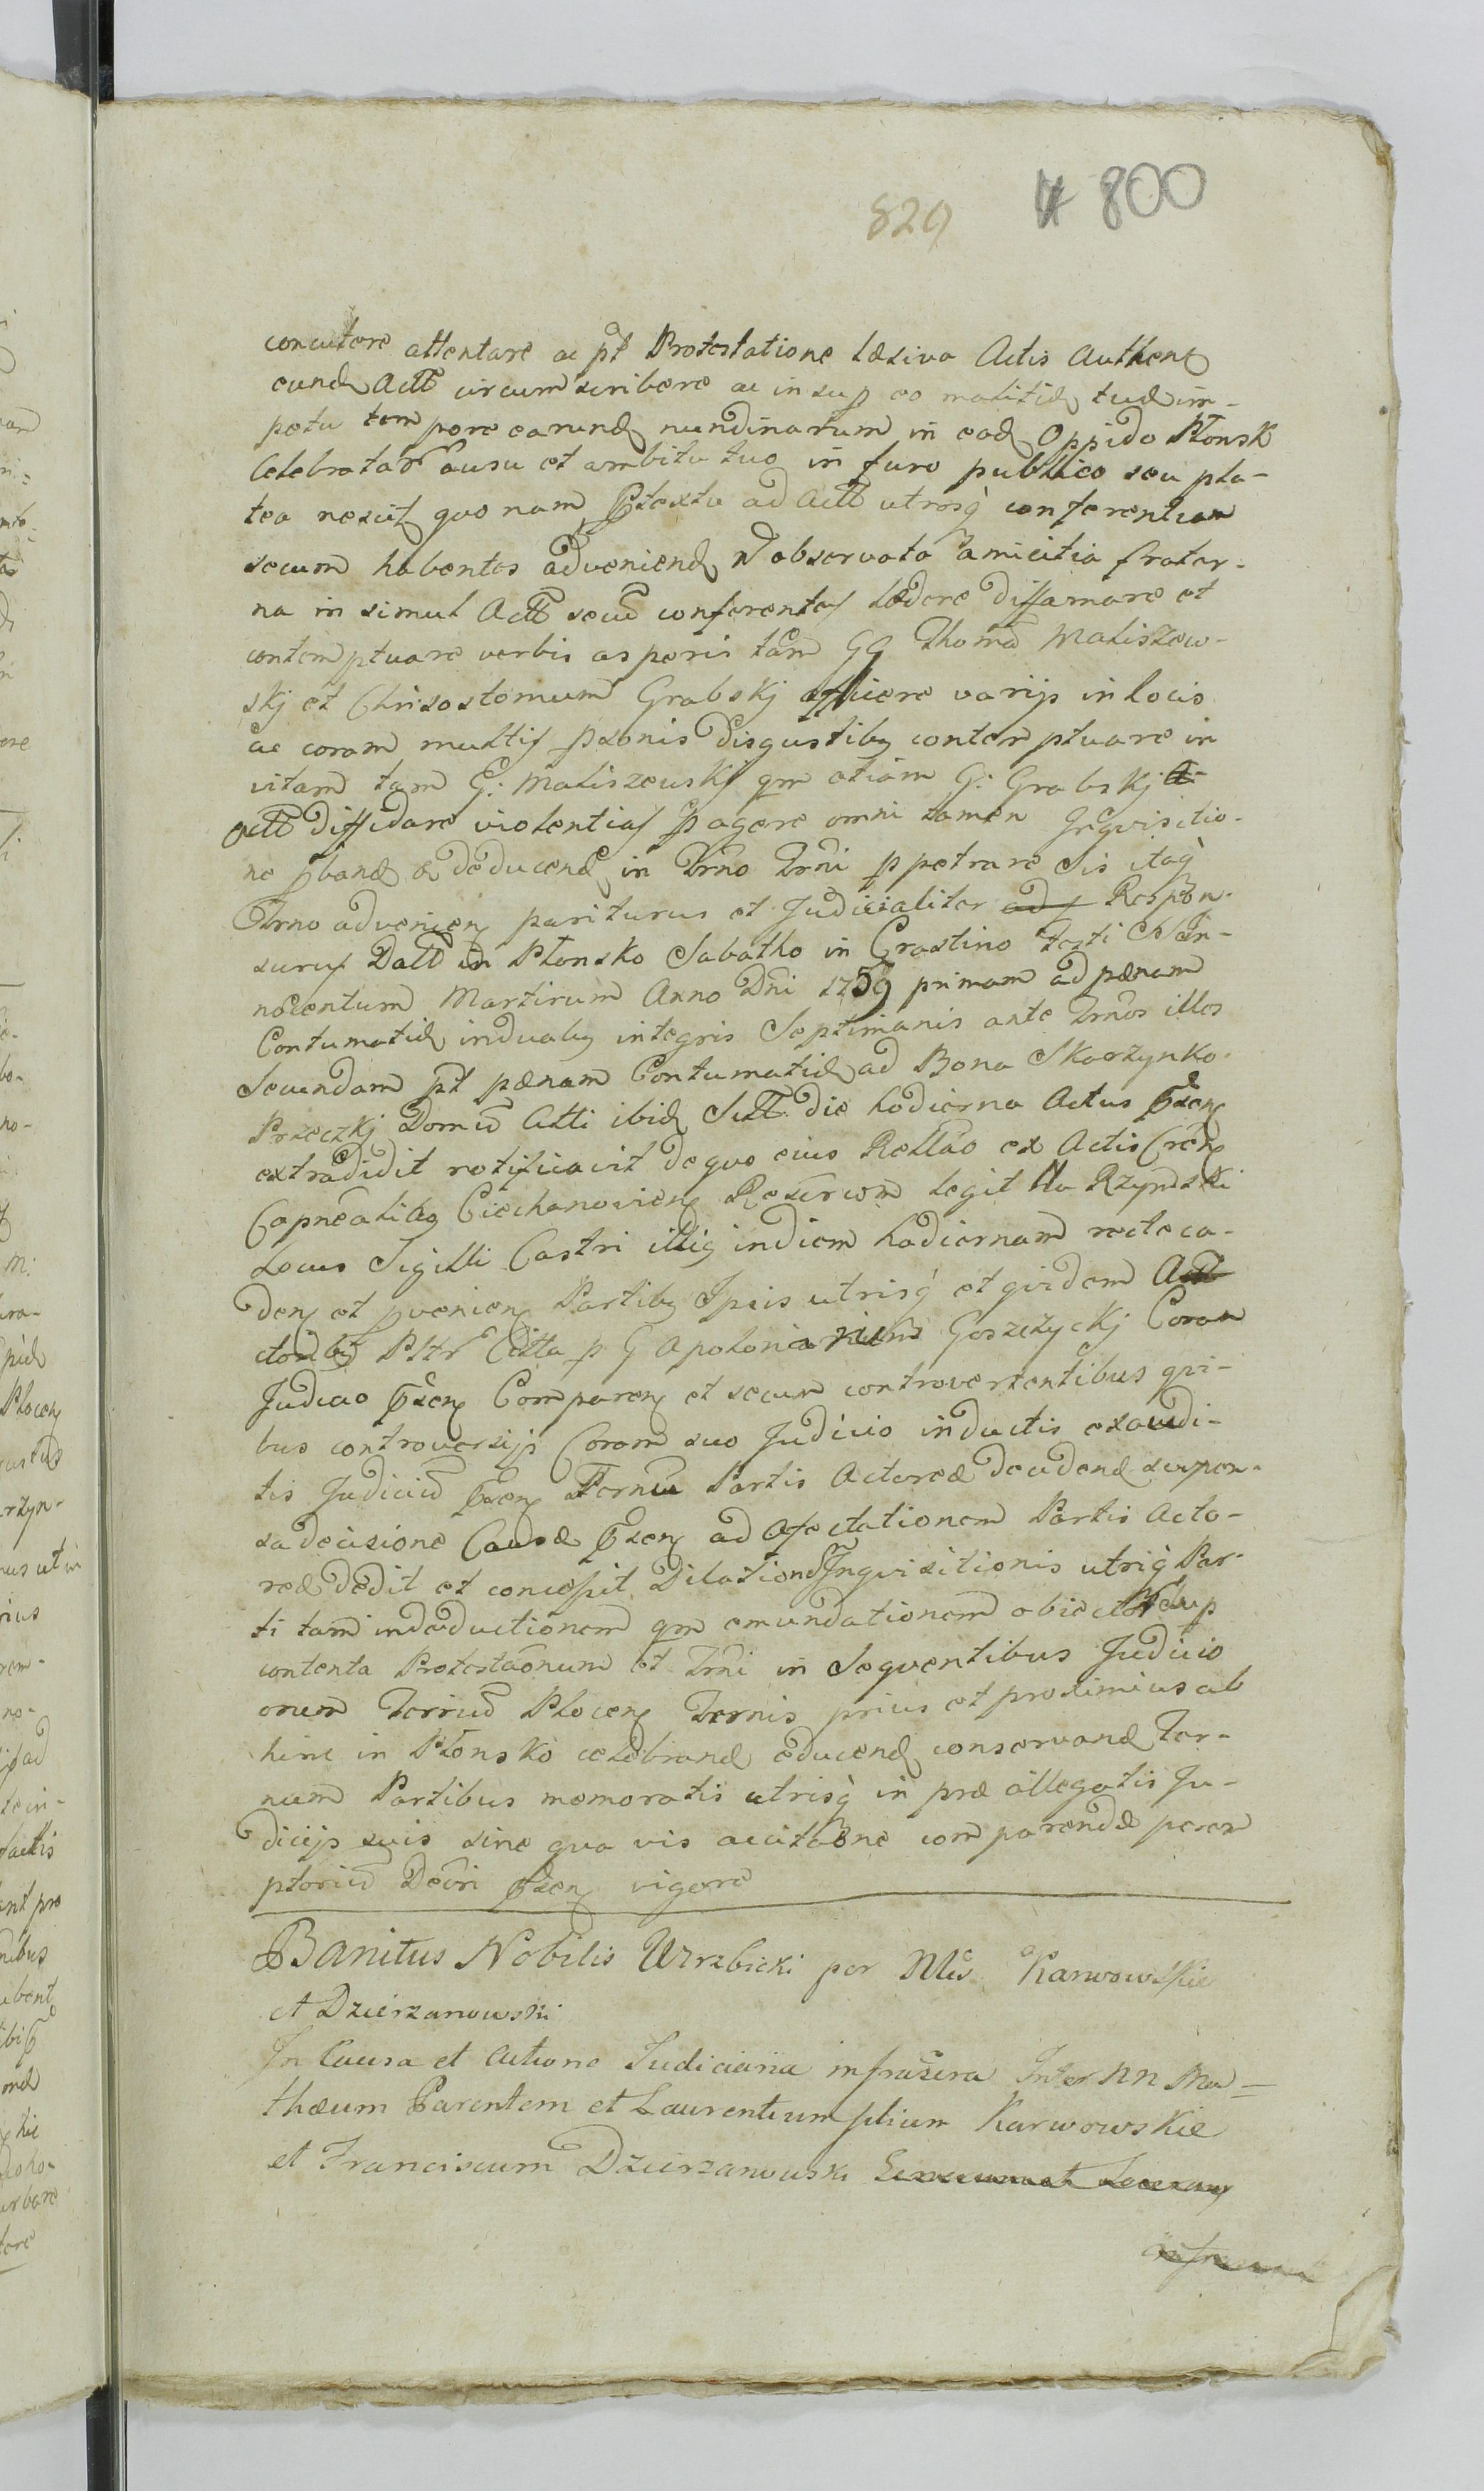 829 800
concutere attentare ac pt Protestatione læsiva Actis Authen
eund Actt circumscribere ac in sup eo malitiæ tuæ im-
petu tempore earund nundinarum in eod Oppido Płonsk
Celebratar ausu et ambitu tuo in furo publico seu pla-
tea nescit quo nam Ptextu ad Actt utrosq conferentiam
secum habentes adveniend observata amicitia frater-
na in simul Actt secu conferentes lædere diffamare et
contemptuare verbis asperis tam GG Thoma Maliszew-
skj et Chrisostomum Grabskj afficere varijs in locis
ac coram multis psonis disgustibus contemptuare in
vitam tam G: Maliszewskj qm etiam G: Grabskj
Actt diffidare violentias pagere omni tamen Inqvisitio-
ne pband & deducend in Trno Trni ppetrare Sis itaq
Trno advenien pariturus et Judicialiter Respon-
surus Datt in Płonsko Sabatho in Crastino Festi SS In-
nocentum Martirum Anno Dni 1759 primam ad pænam
Contumatiæ in duabus integris Septimanis ante Trnos illos
Secundam pt pænam Contumatiæ ad Bona Skarzynko
Przeczkj Domu Atti ibid Sitt die hodierna Actus Psen
extradidit notificavit de quo eius Rellao ex Actis Cren
Capnealibus Ciechanovien Rescrem legit Na Rzymski
Locus Sigilli Castri illius in diem hodiernam recte ca-
den et pvenien Partibus Ipsis utrisq et qvidem
ctoribus Pltr Citta p G Apolonia Goszczyckj Coram
Judicio Psen Comparen et secum controvertentibus qvi-
bus controversijs Coram suo Judicio inductis exaudi-
tis Judiciu Psen Termu Partis Actoreæ decidend suspen-
sa decisione Causæ Psen ad Afectationem Partis Acto-
reæ dedit et concessit Dilatione Inqvisitionis utriq Par-
ti tam in deductionem qm emundationem obiector sup
contenta Protestaonum et Trni in Seqventibus Judicio
orum Terriu Plocen Termis prius et proximius ab
hinc in Płonsko celebrand educend conservand Ter-
num Partibus memoratis utrisq in præ allegatis Ju-
dicijs suis sine qua vis accitaone comparendæ perem
ptoriu Decri Psen vigore
Banitus Nobilis Wirzbicki per Karwowskie
et Dzierzanowski
In Causa et Actione Judiciaria infrascra Inter NN Ma=
thæum Parentem et Laurentium filium Karwowskie
et Franciscum Dzierzanowski